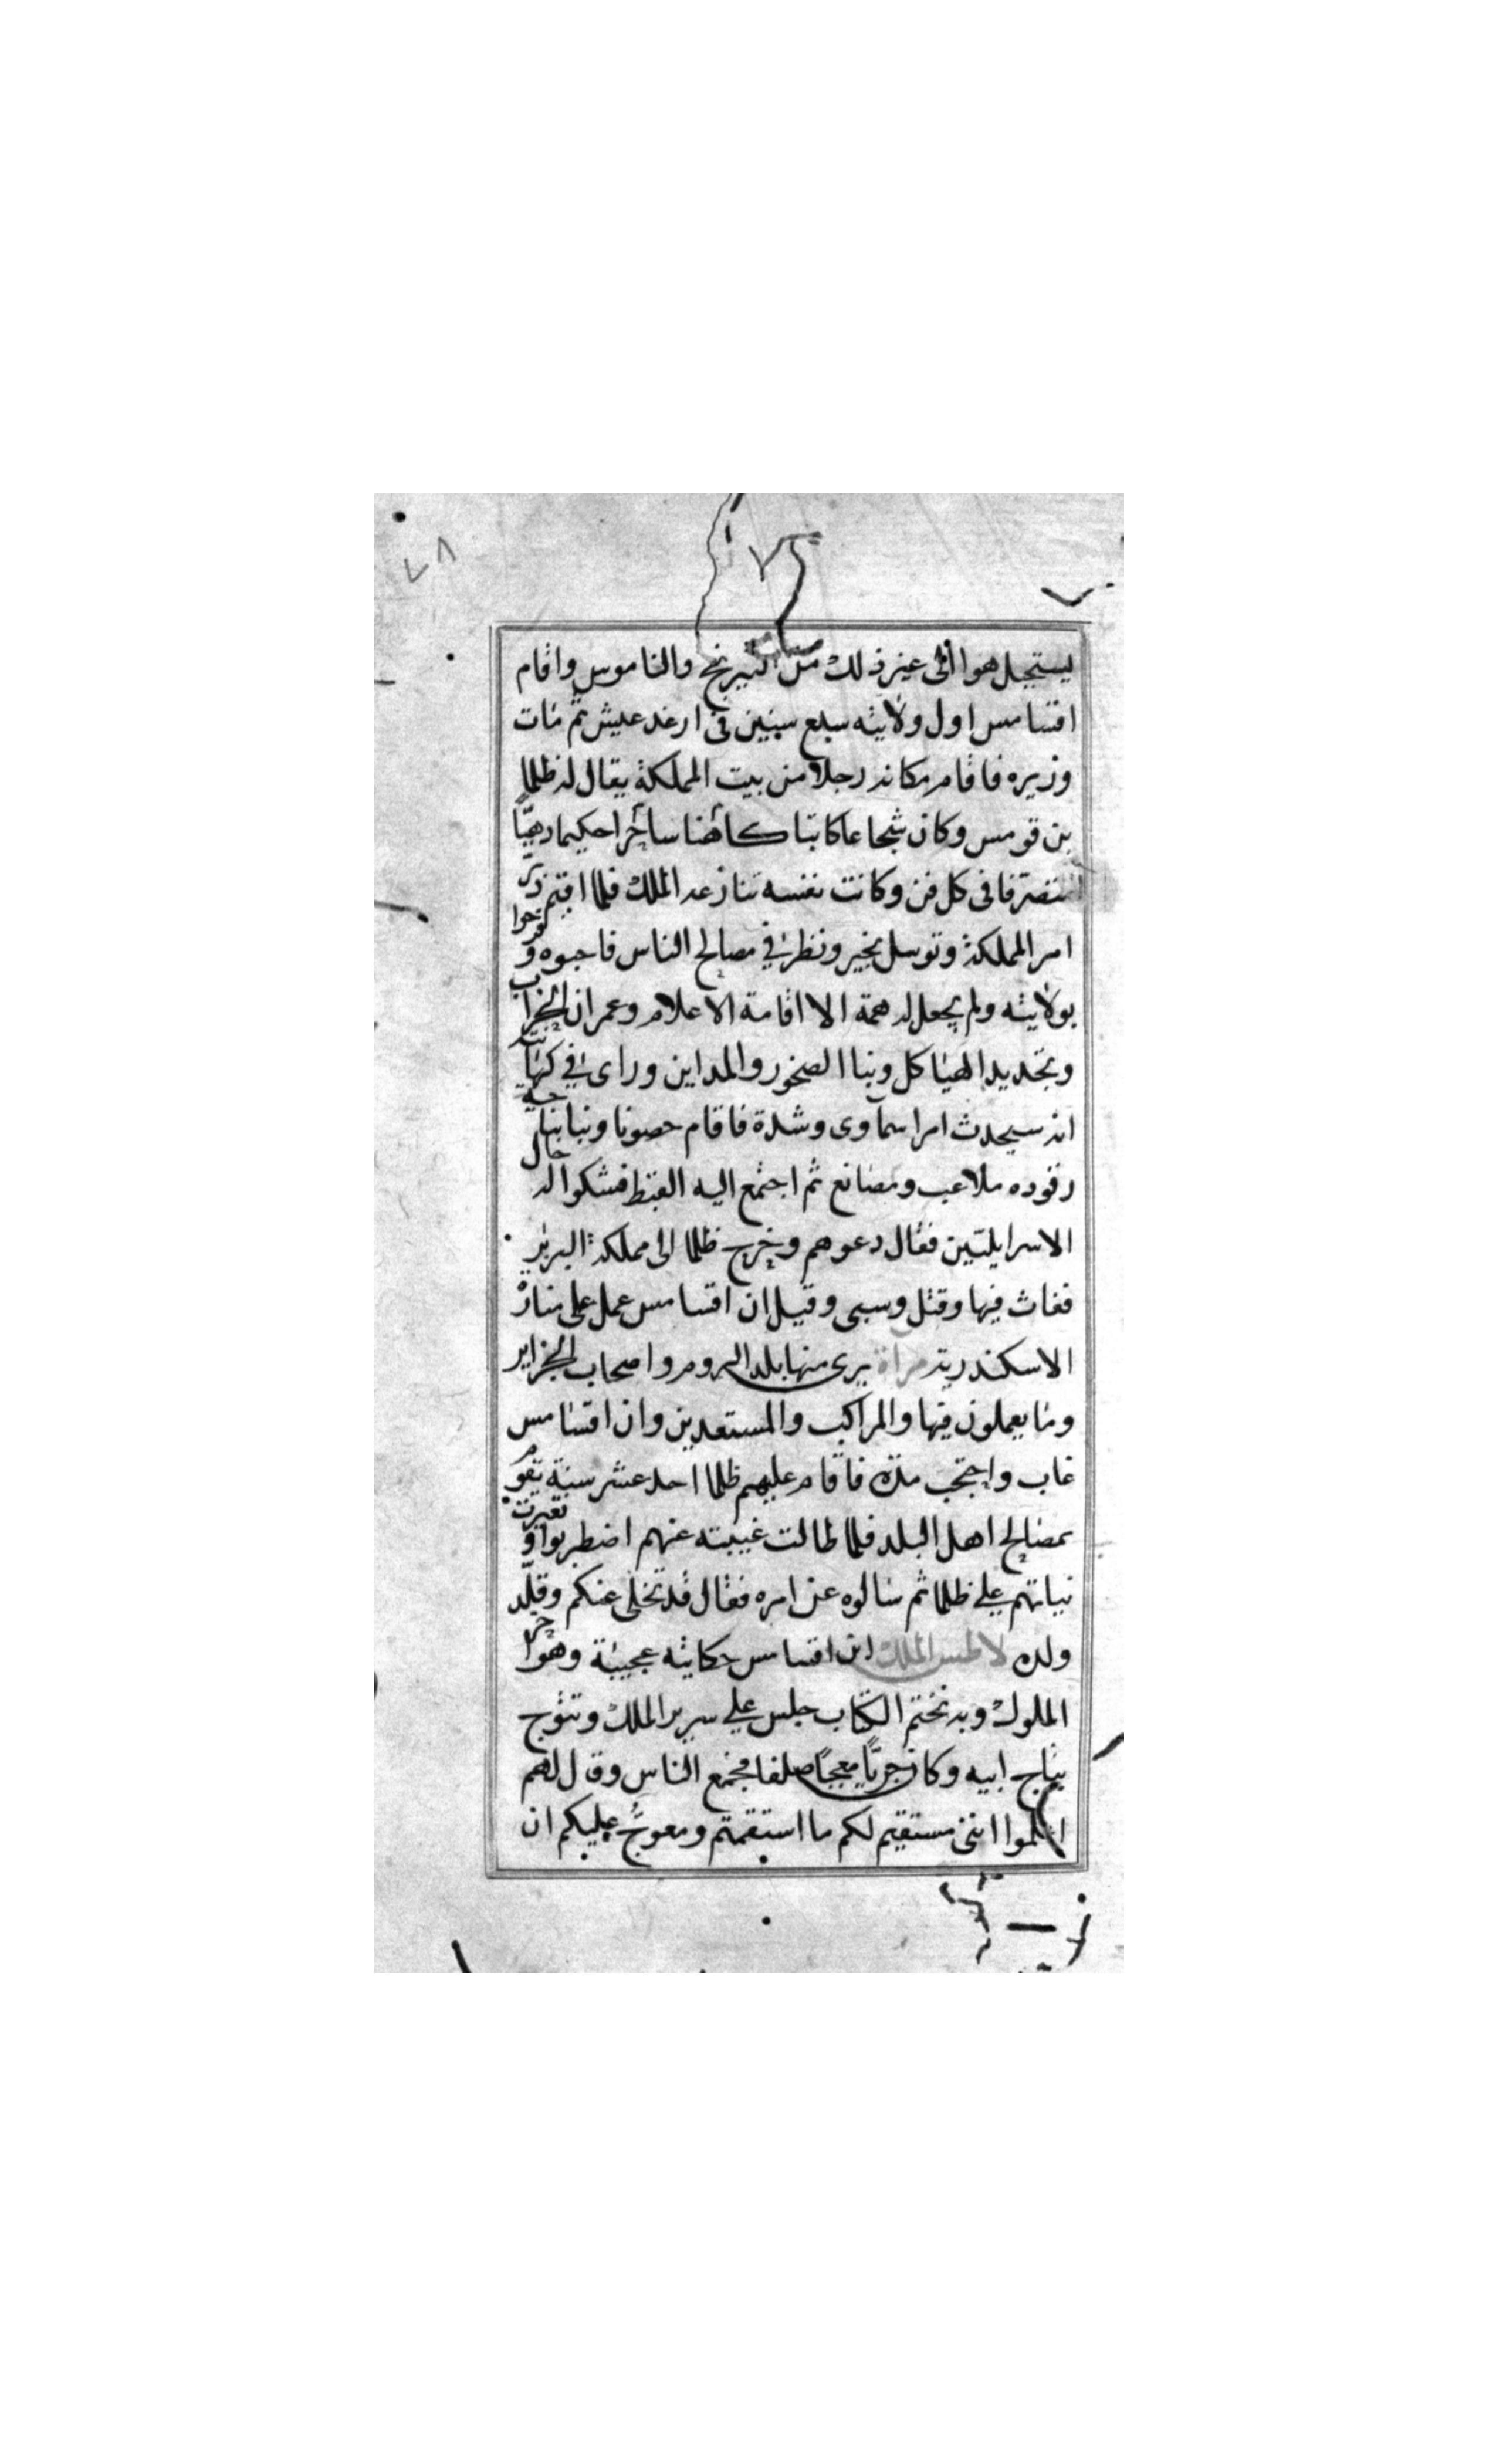 ٧٨
ليستجبل هوا الى غير ذلك من النيرنج والناموس واقام
اقسامس اول ولايته سبع سنين فى ارغد عيش ثم مات
وزيره فاقام مكانه رجلا من بيت المملكة يقال له ظلما
بن قومس وكان شجاعا كاتبا كاهنا ساحرا حكيما دهيّا
متصرفا فى كل فن وكانت نفسه تنازعه الملك فلما اقيم دبّر
امر المملكة وتوسل بخير ونظر في مصالح الناس فاحبوه وفرحوا
بولايته ولم يجعل له همة الا اقامة الاعلام وعمران الخراب
وتجديد الهياكل وبنا الصخور والمداين وراى في كهانته
انه سيحدث امر اسماوى وشدة فاقام حصونا وبنا بناحية
رقوده ملاعب ومصانع ثم اجتمع اليه القبط فشكوا له حال
الاسرايليّين فقال دعوهم وخرج ظلما الى مملكة البربر
فغاث فيها وقتل وسبى وقيل ان اقسامس عمل على منارة
الاسكندرية مرآة يرى منها بلد الروم واصحاب الجزاير
وما يعملون فيها والمراكب والمستعدين وان اقسامس
غاب واحتجب مدة فاقام عليهم ظلما احد عشر سنة يقوم
بمصالح اهل البلد فلما طالت غيبته عنهم اضطربوا وتغيرت
نياتهم علي ظلما ثم سالوه عن امره فقال قد تخلى عنكم وقلّد
ولده لاطس الملك ابن اقسامس حكايته عجيبة وهو اخر
الملوك وبه نختم الكتاب جلس علي سرير الملك وتتوج
بتاج ابيه وكان جريّا معجبًا صلفا فجمع الناس وقال لهم
اعلموا اننى مستقيم لكم ما استقمتم ومعوجّ عليكم ان